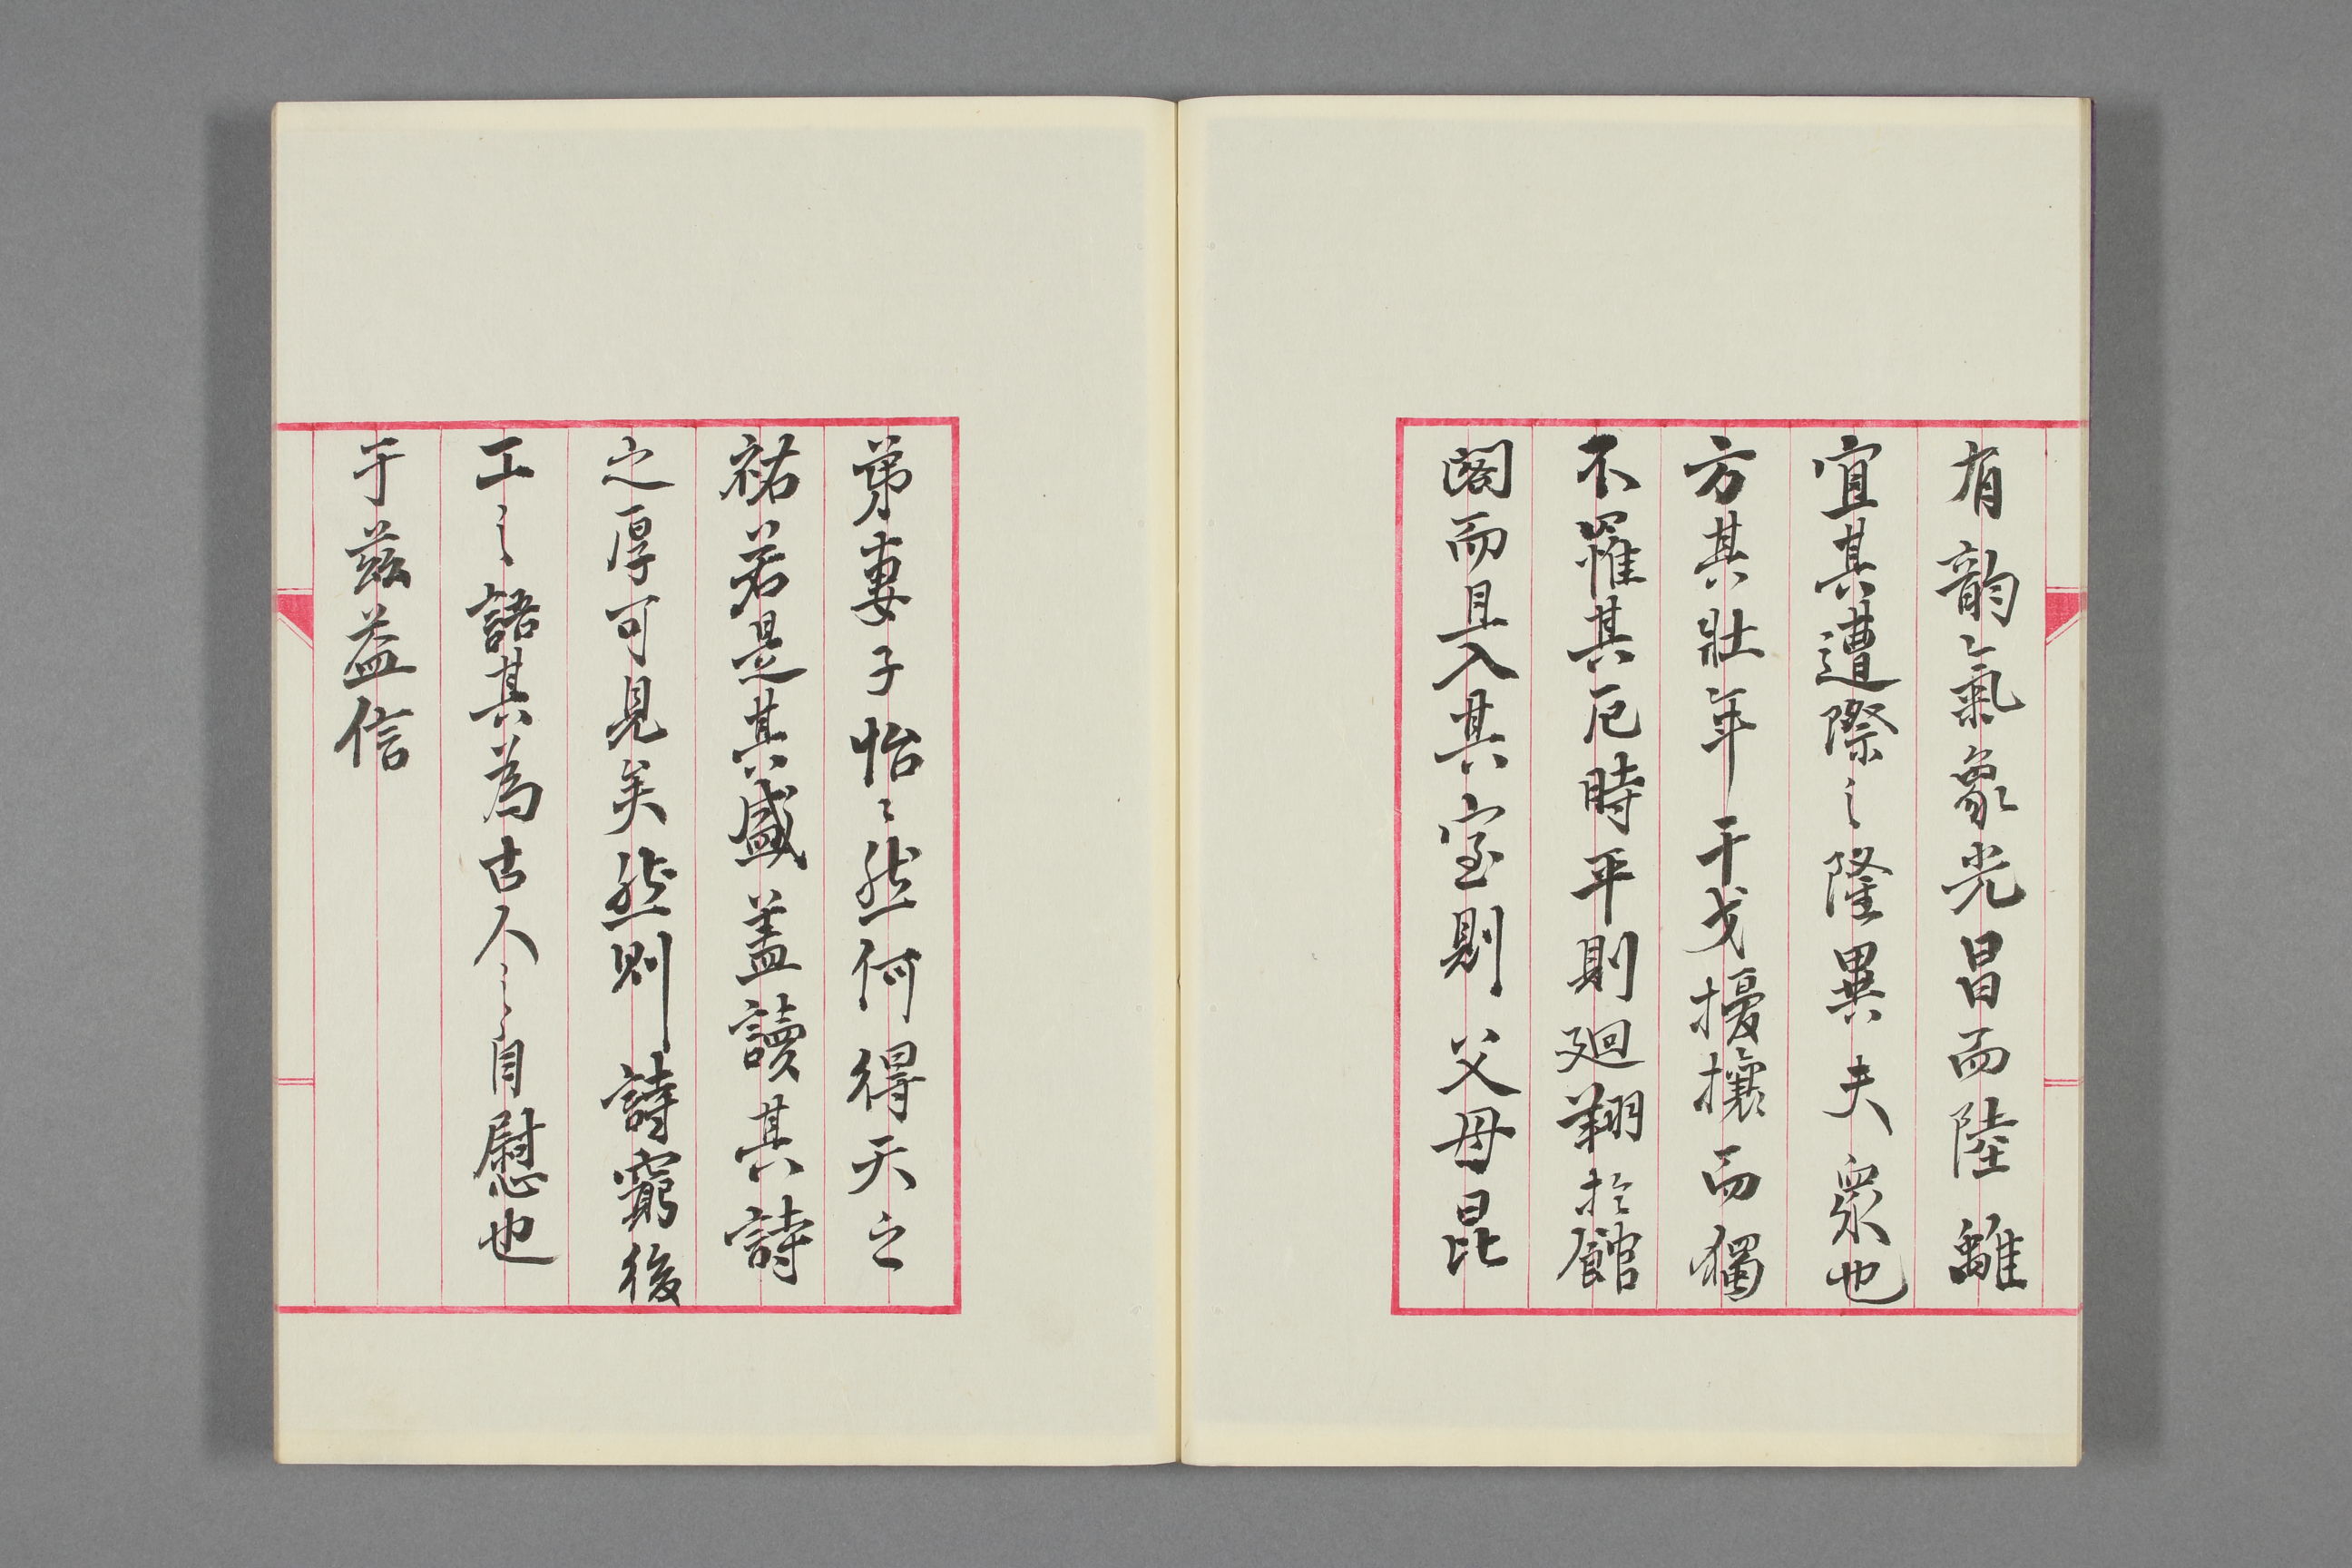 有韵氣象光昌而陸離
宜其遭際之隆異夫衆也
方其壯年干戈擾攘而獨
不罹其厄時平則廻翔於館
閣而且入其室則父母昆
弟妻子怡〻然何得天之
祐若是其盛盖讀其詩
之厚可見矣然則詩窮後
工之語其為古人之自慰也
于兹益信